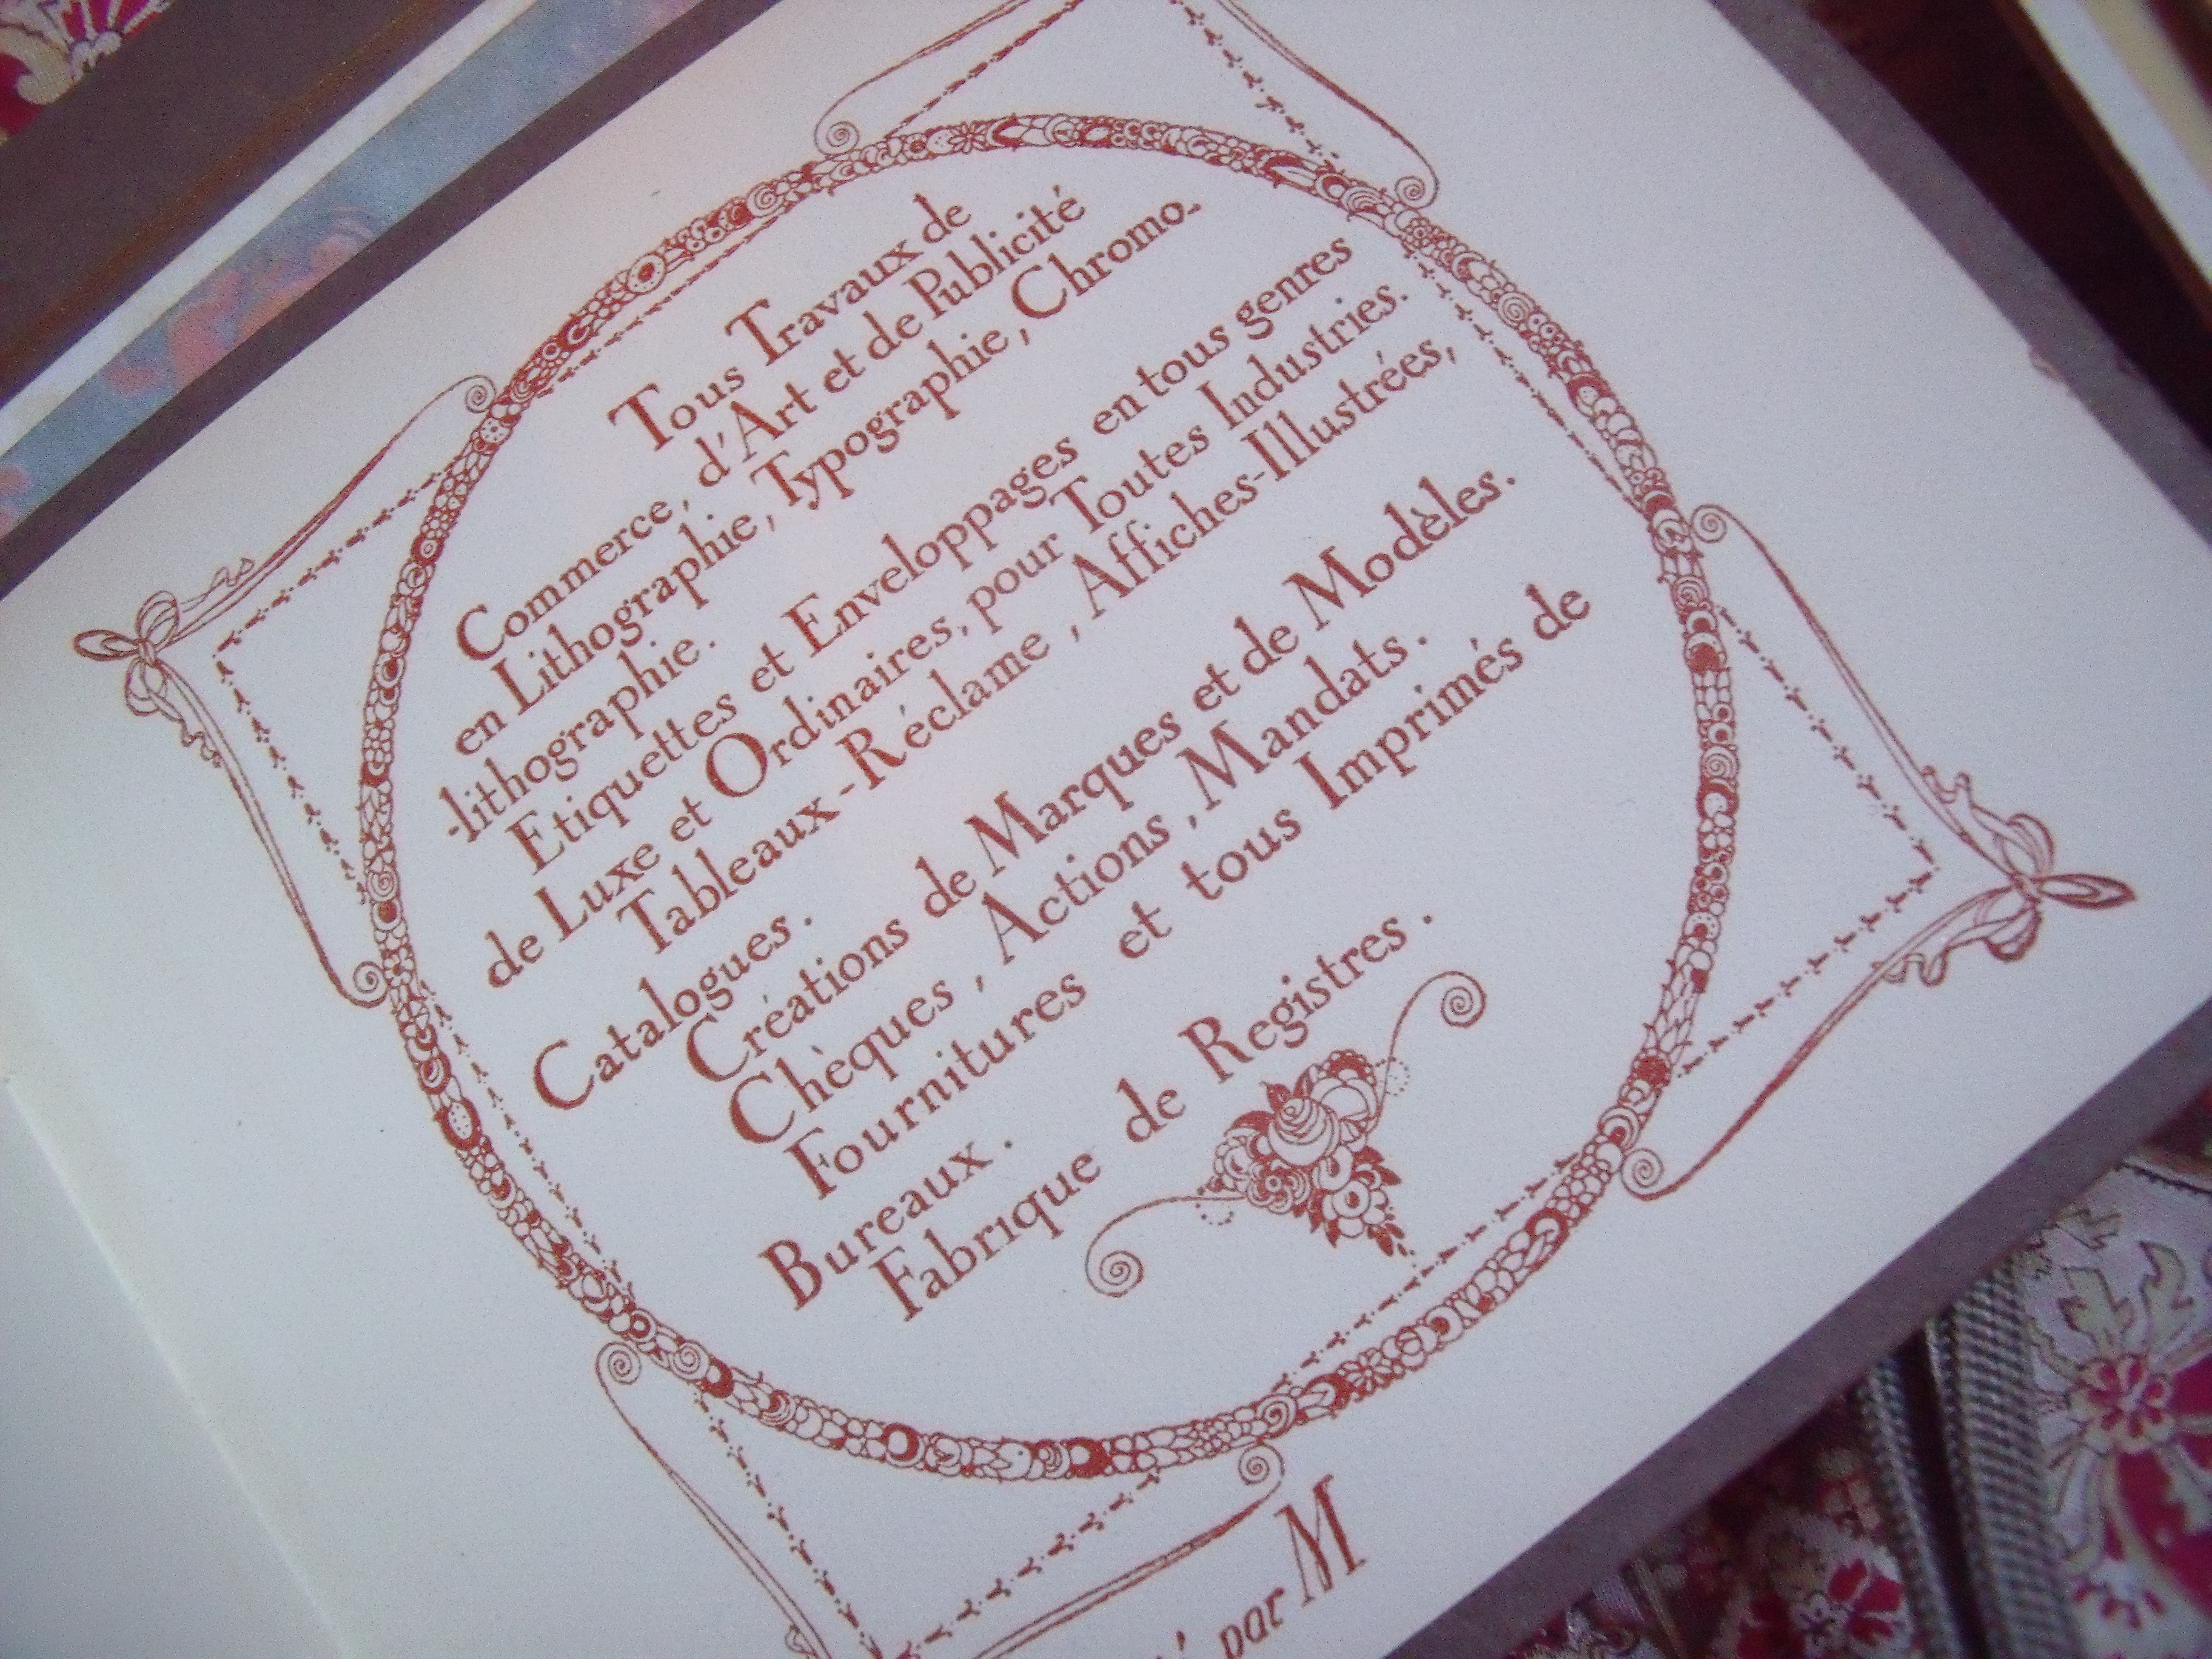 Tous Travaux de
Commerce, d'Art et de Publicité
en Lithographie, Typographie, Chromo-
-lithographie.
Etiquettes et Enveloppages en tous genres
de Luxe et Ordinaires, pour Toutes Industries.
Tableaux-Réclame, Affiches-Illustrées,
Catalogues.
Créations de Marques et de Modèles.
Chèques, Actions, Mandats.
Fournitures et tous Imprimés de
Bureaux.
Fabrique de Registres.
par M